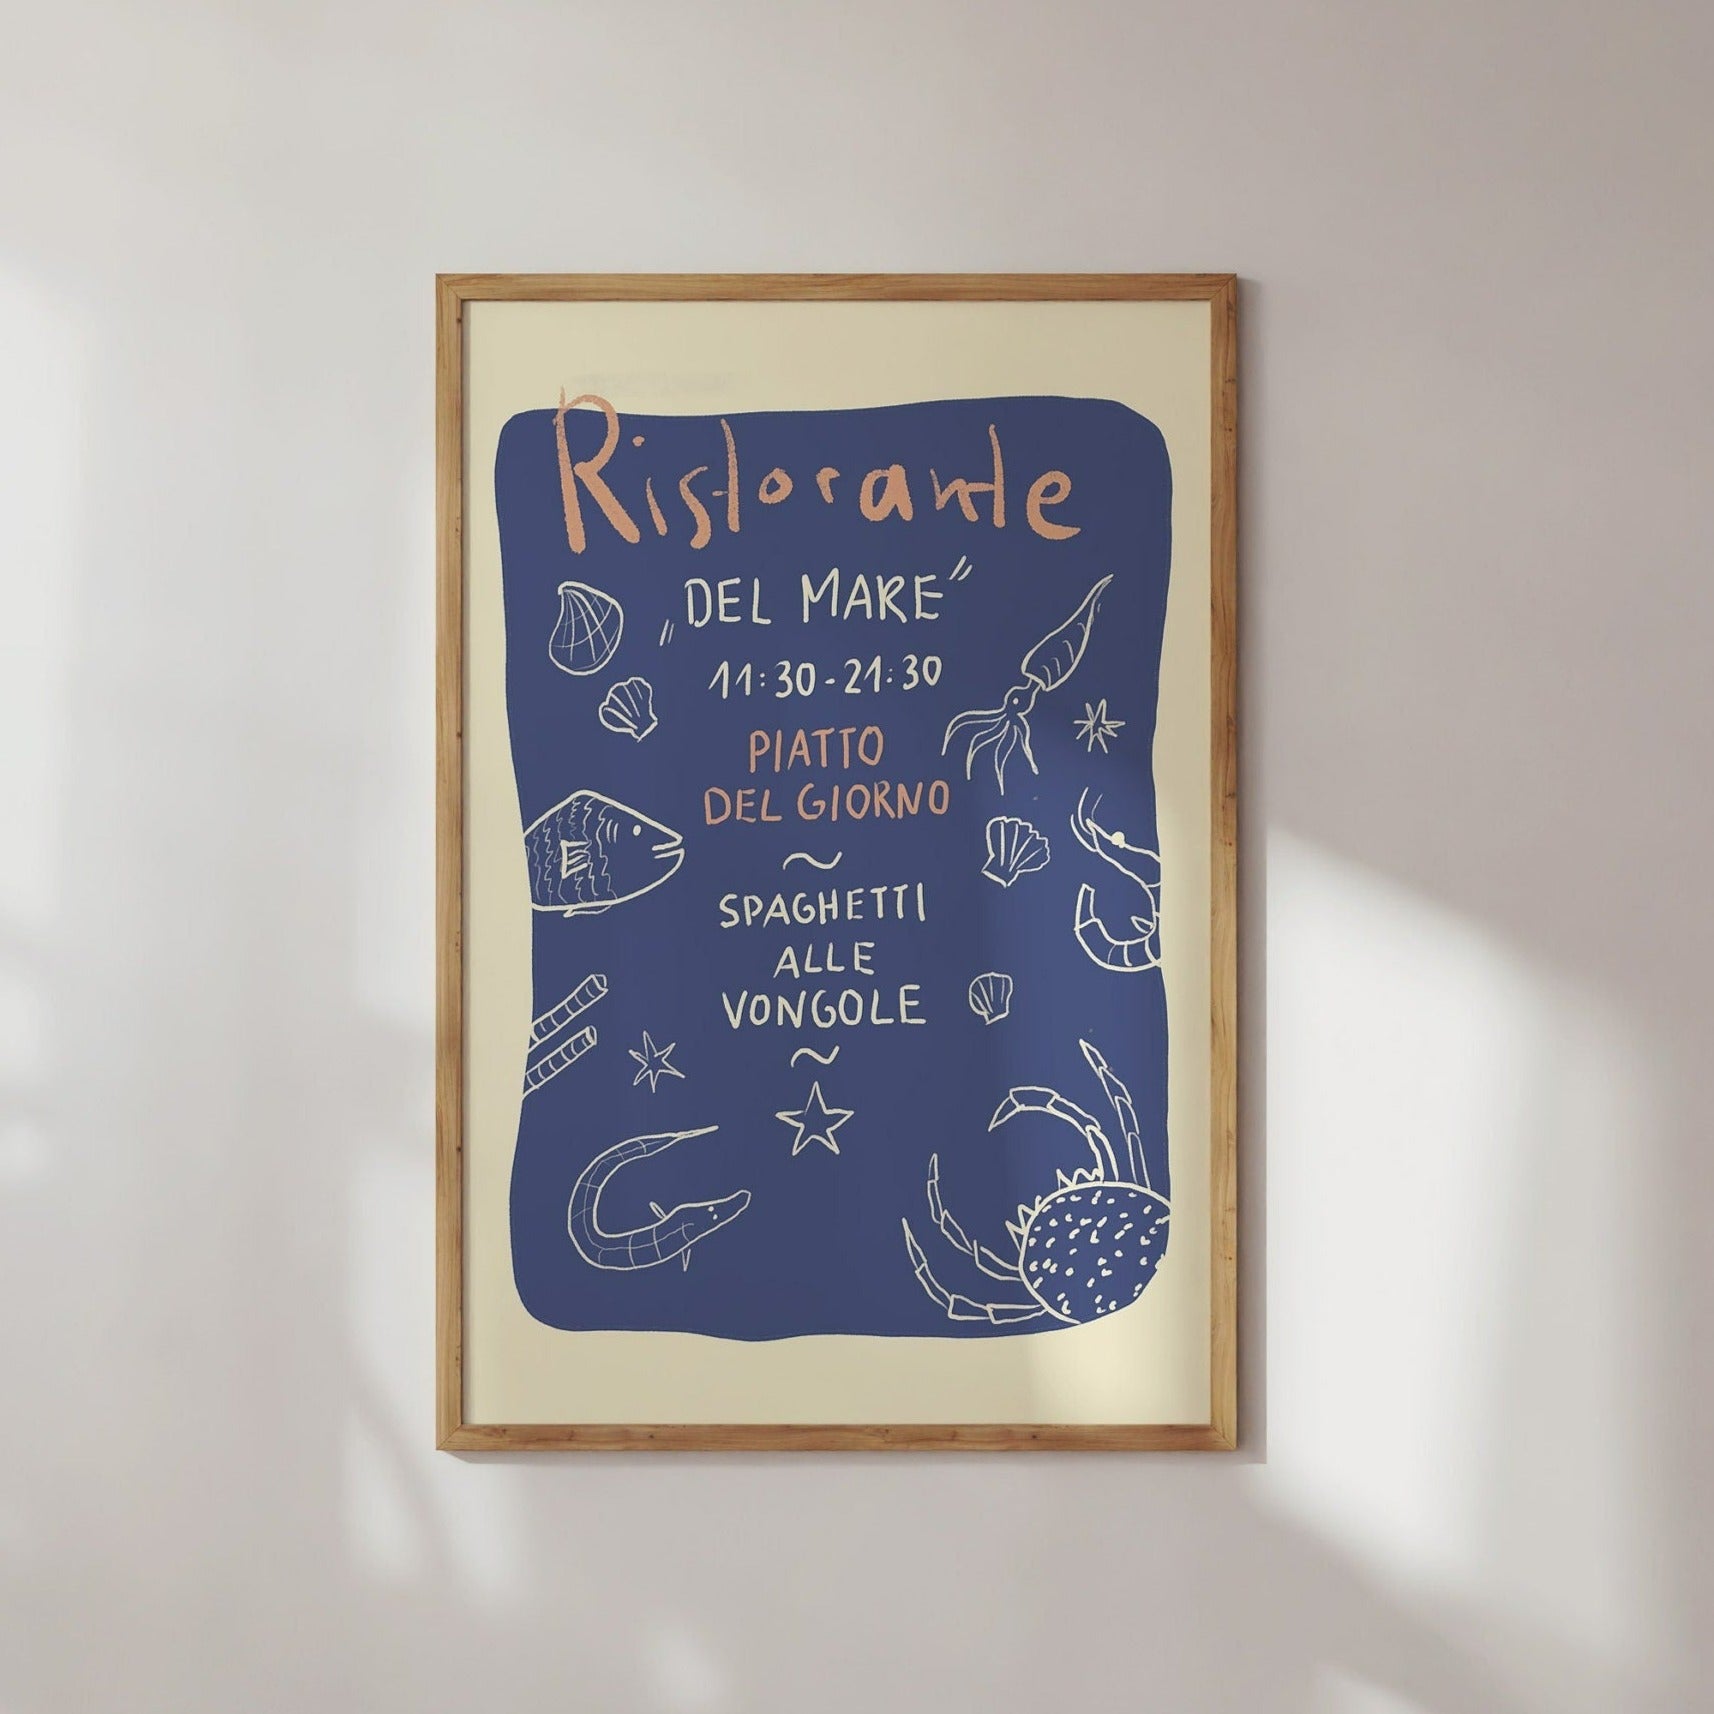 Ristorante
„DEL MARE"
11:30-21:30
PIATTO
DEL GIORNO
~
SPAGHETTI
ALLE
VONGOLE
~